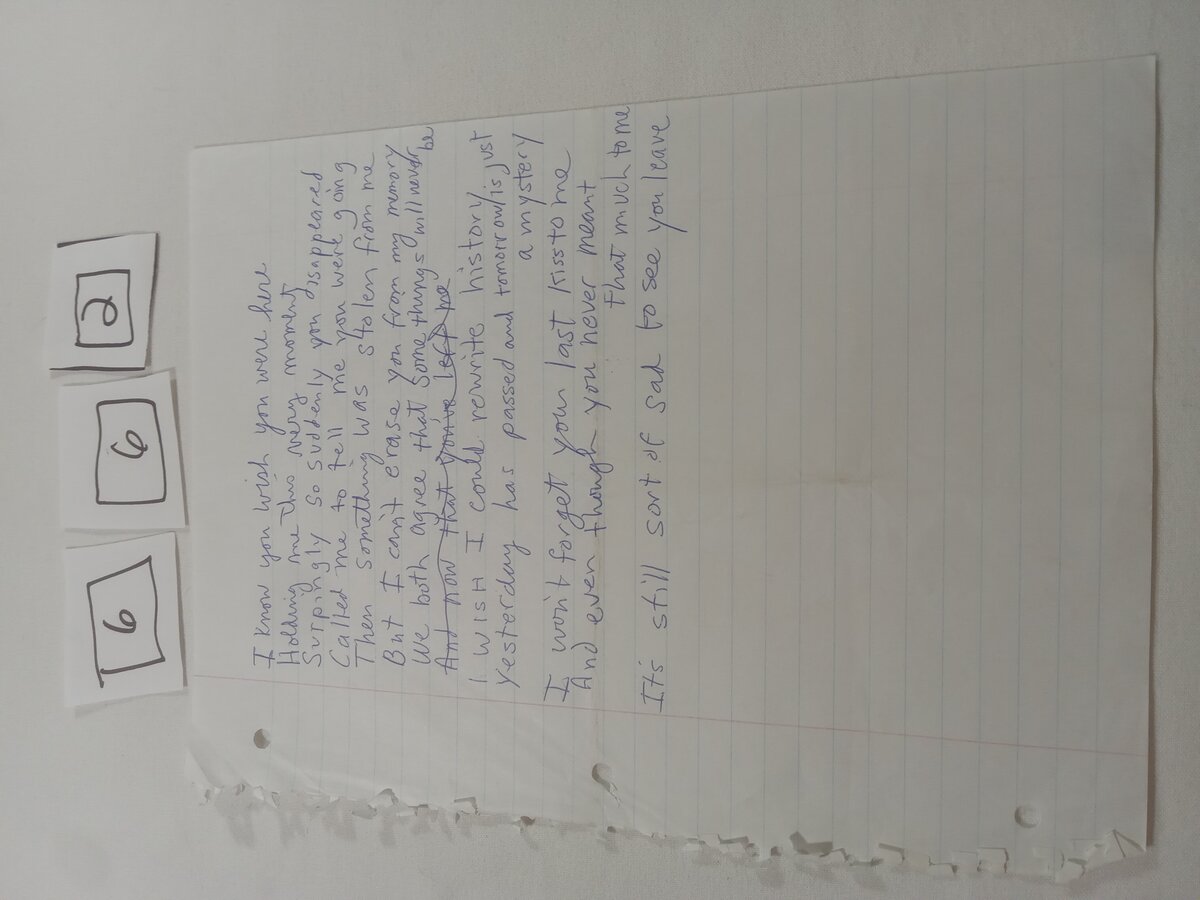 6 6 2
I know you wish you were here
Holding me this very moment
Surpingly so suddenly you dissappeared
Called me to tell me you were going
Then something was stolen from me
But I can't erase you from my memory
We both agree that some things will never be
And now that you've left me
I wish I could rewrite history
yesterday has passed and tomorrow is just
a mystery
I won't forget your last kiss to me
And even though you never meant
that much to me
It's still sort of sad to see you leave